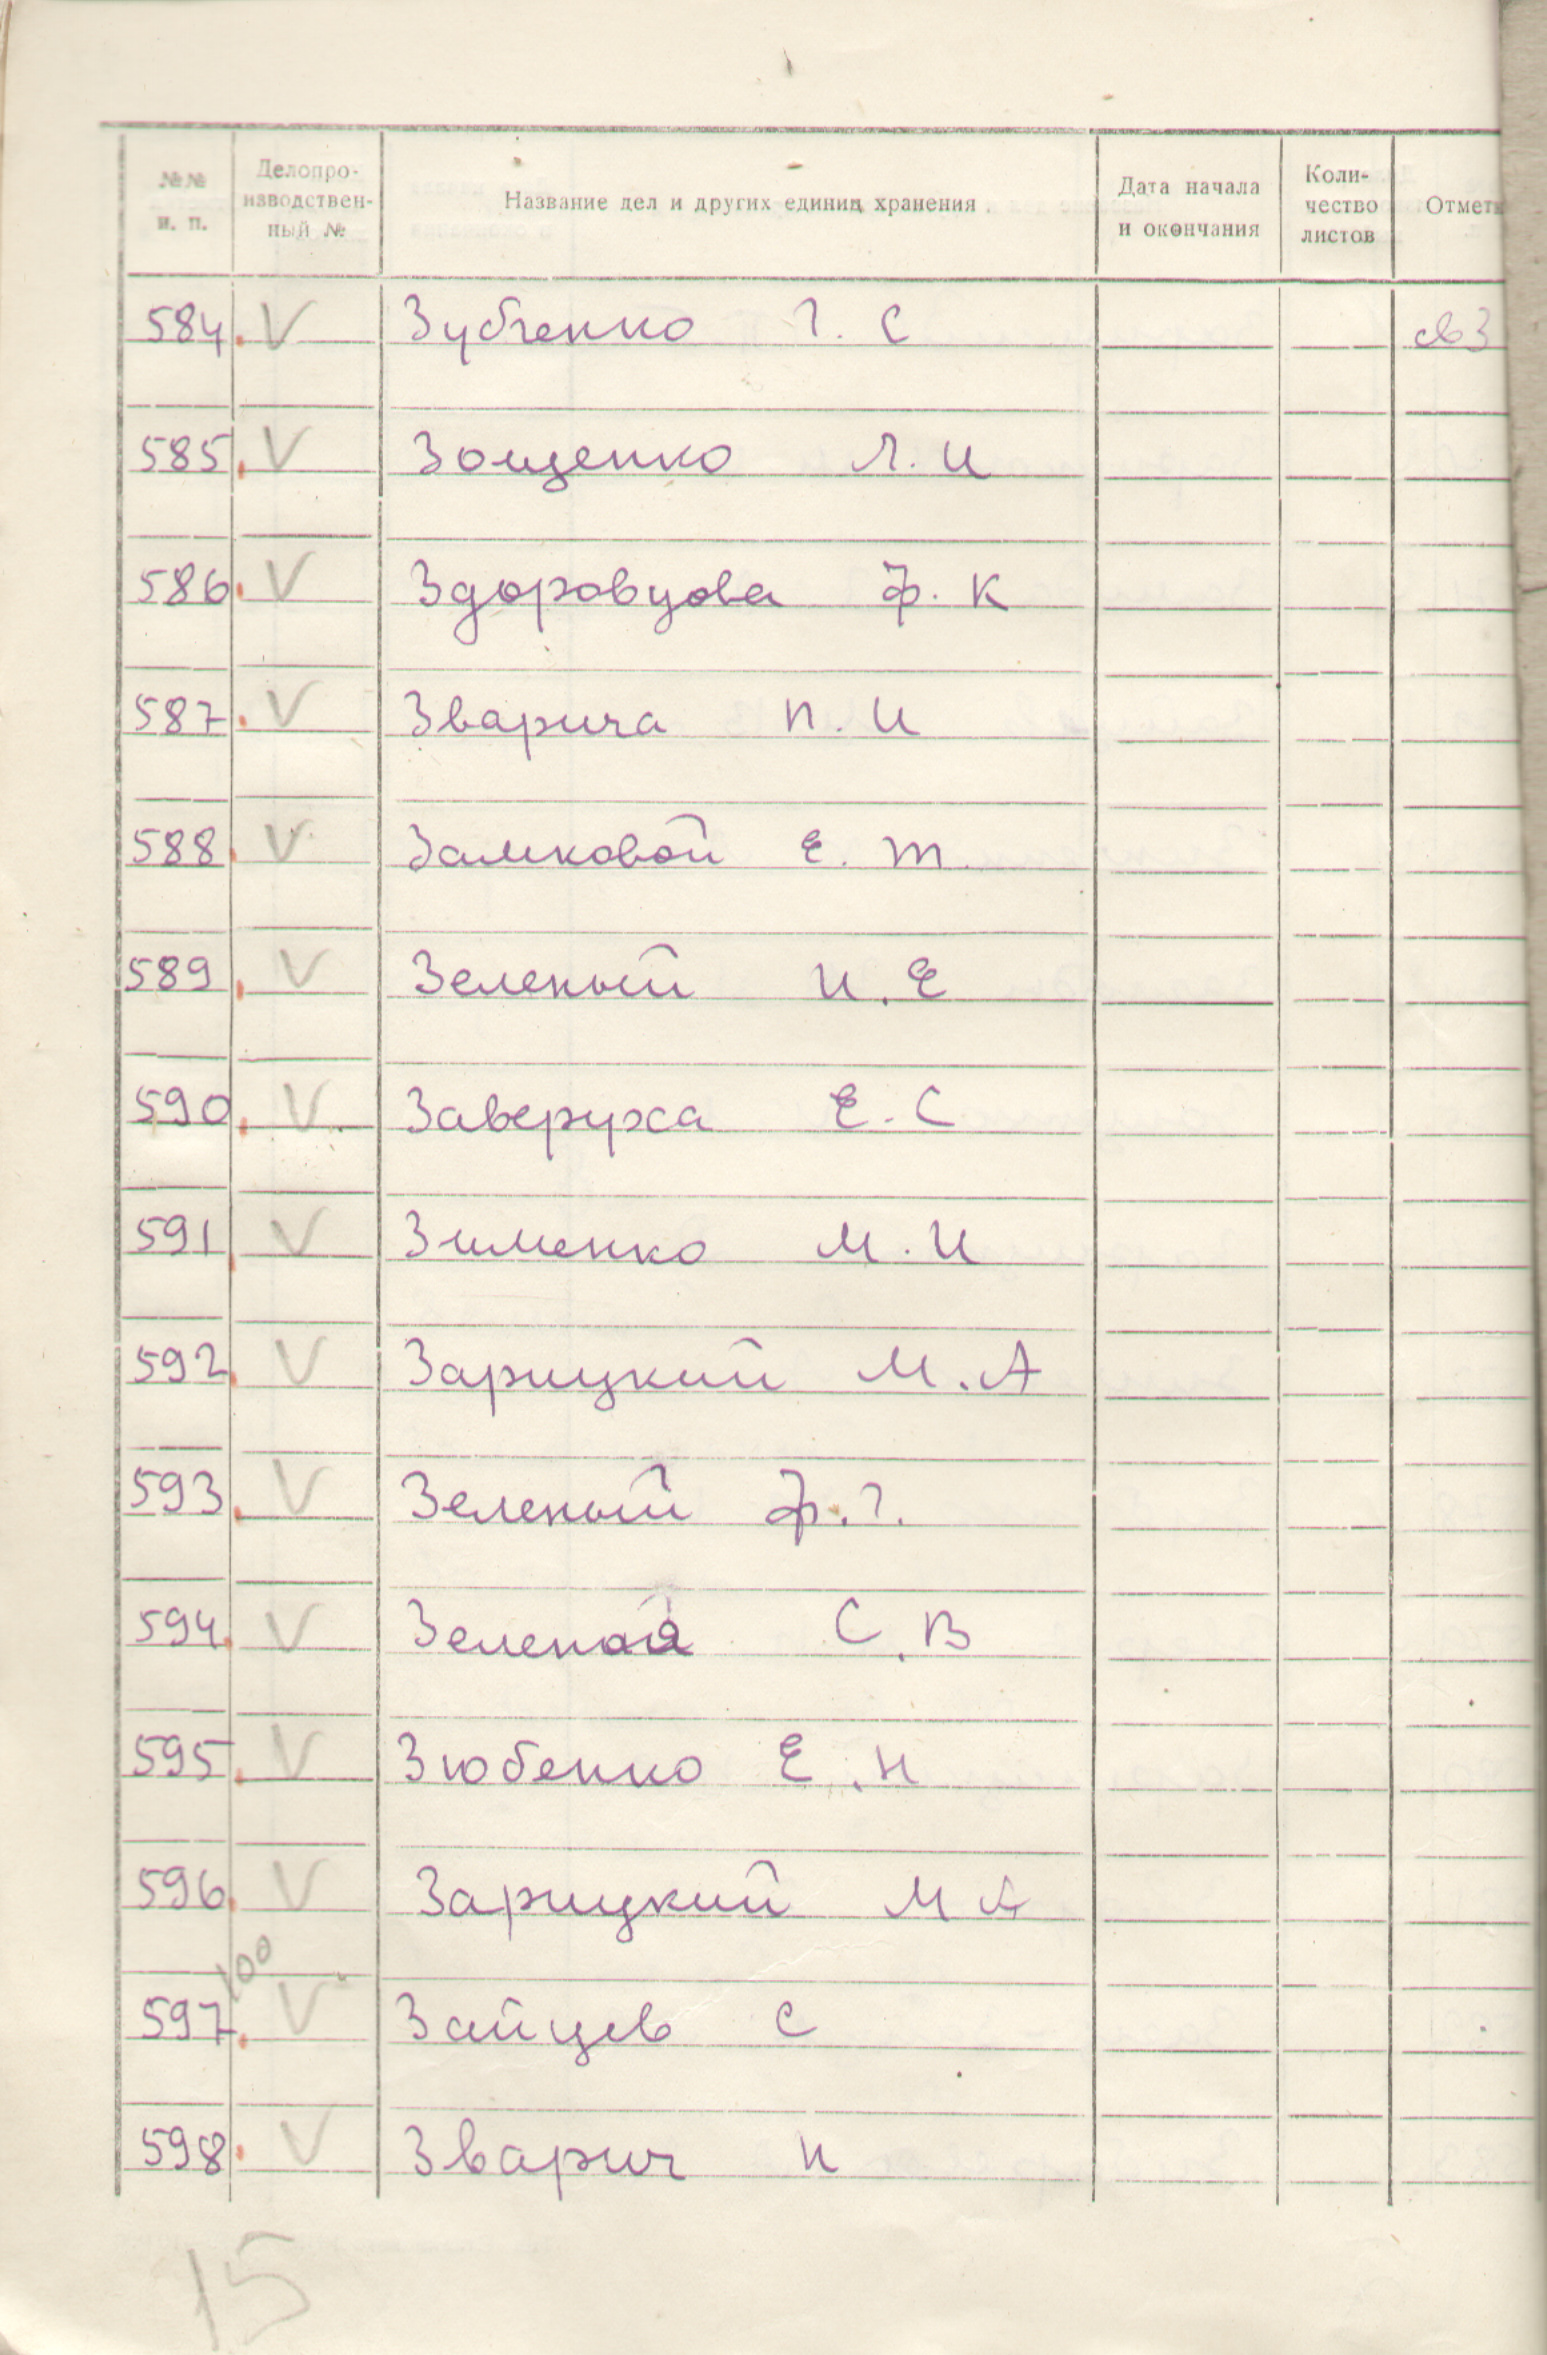 №№ и. п. Делопро-изводствен-ный № Название дел и других единиц хранения Дата начала и окончания Коли-чество листов Отметк
584. V Зубченко Г. С св 3
585. V Зощенко Л. И
586. V Здоровцова Ф. К
587. V Зварича П. И
588. V Замковой Е. Т.
589. V Зеленый И. Е
590. V Заверуха Е. С
591. V Зименко М. И
592. V Зарицкий М. А
593. V Зеленый Ф. Г.
594. V Зеленая С. В
595. V Зюбенко Е. Н
596. V Зарицкий М А
100
597. V Зайцев С
598. V Зварич И
15